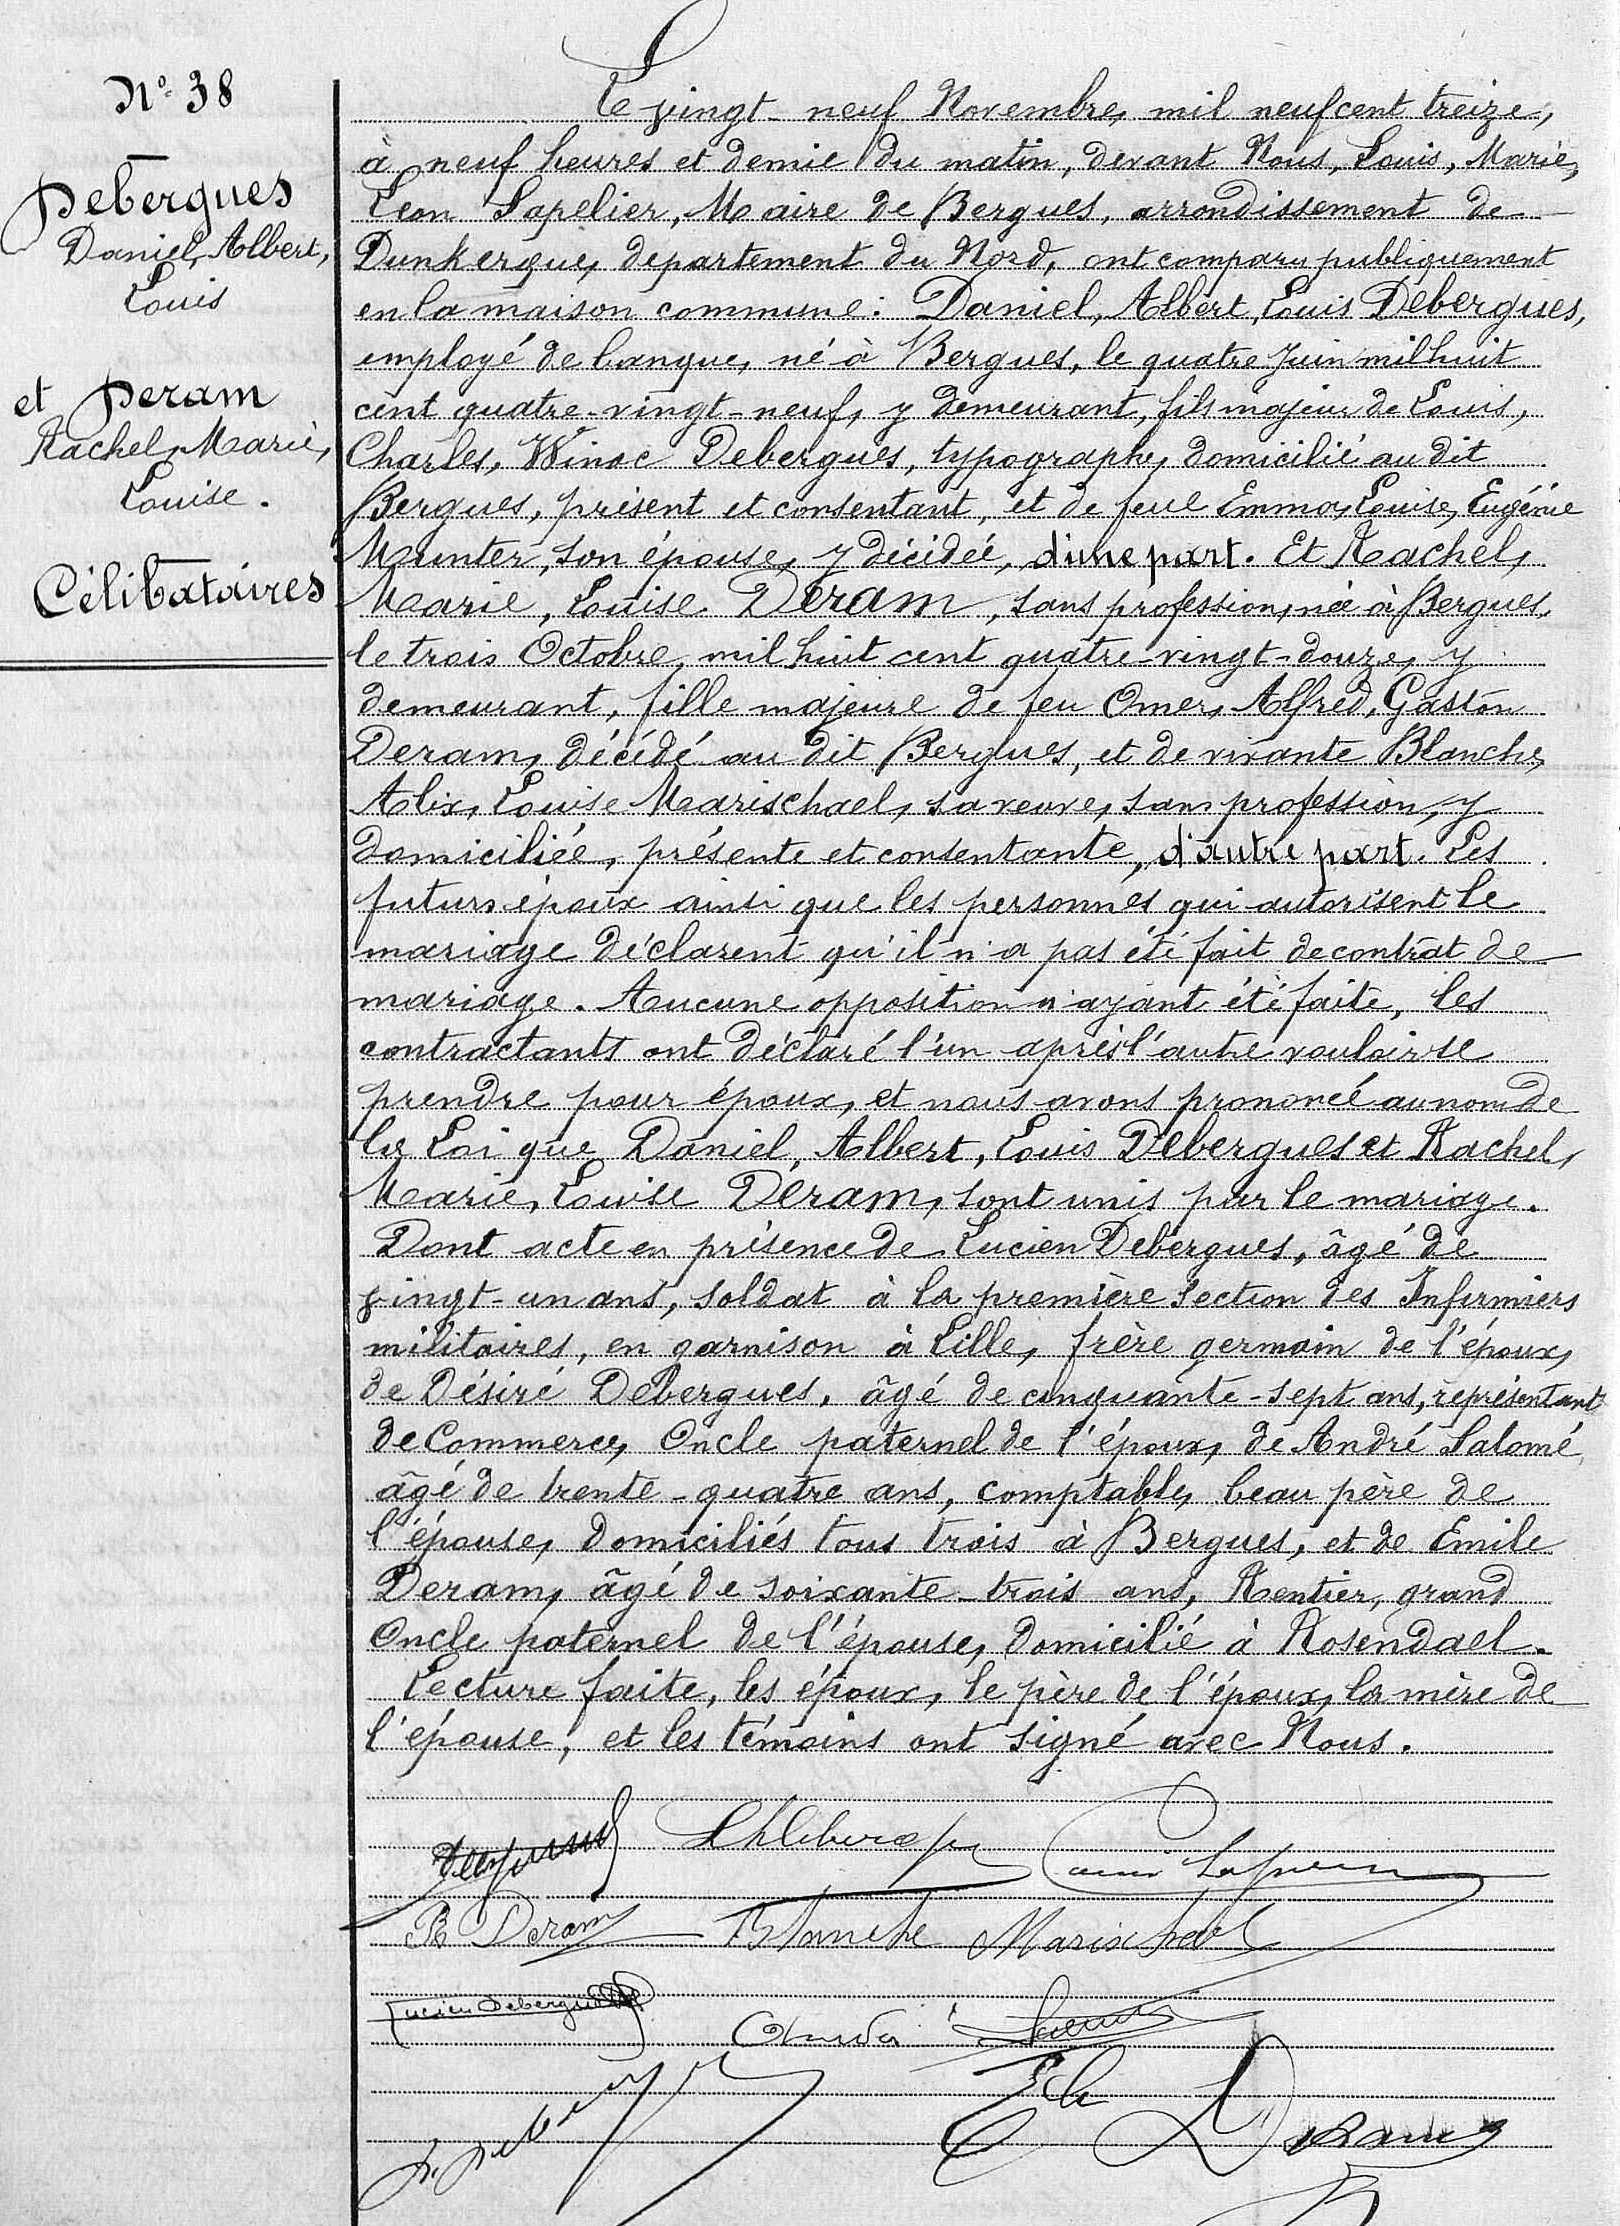 N° 38
Debergues
Daniel, Albert,
Louis
et Deram
Rachel, Marie,
Louise.
Célibataires
Le vingt-neuf Novembre, mil neuf cent treize,
à neuf heures et demie du matin, devant Nous, Louis, Marie,
Léon Sapelier, Maire de Bergues, arrondissement de
Dunkerque, département du Nord, ont comparu publiquement
en la maison commune: Daniel, Albert, Louis Debergues,
employé de banque, né à Bergues, le quatre Juin mil huit
cent quatre-vingt-neuf, y demeurant, fils majeur de Louis,
Charles, Winoc Debergues, typographe, domicilié au dit
Bergues, présent et consentant, et de feue Emma, Louise, Eugénie
Munter, son épouse, y décédée, d'une part. Et Rachel,
Marie, Louise Deram, sans profession, née à Bergues,
le trois Octobre, mil huit cent quatre-vingt-douze, y
demeurant, fille majeure de feu Omer, Alfred, Gaston
Deram, décédé au dit Bergues, et de vivante Blanche,
Alix, Louise Marischael, sa veuve, sans profession, y
domiciliée, présente et consentante, d'autre part. Les
futurs époux ainsi que les personnes qui autorisent le
mariage déclarent qu'il n'a pas été fait de contrat de
mariage. Aucune opposition n'ayant été faite, les
contractants ont déclaré l'un après l'autre vouloir se
prendre pour époux, et nous avons prononcé au nom de
la Loi que Daniel, Albert, Louis Debergues et Rachel,
Marie, Louise Deram, sont unis par le mariage.
Dont acte en présence de Lucien Debergues, âgé de
vingt-un ans, soldat à la première Section des Infirmiers
militaires, en garnison à Lille, frère germain de l'époux,
de Désiré Debergues, âgé de cinquante-sept ans, représentant
de Commerce, Oncle paternel de l'époux, de André Salomé,
âgé de trente-quatre ans, comptable, beau père de
l'épouse, domiciliés tous trois à Bergues, et de Emile
Deram, âgé de soixante-trois ans, Rentier, grand
Oncle paternel de l'épouse, domicilié à Rosendael.
Lecture faite, les époux, le père de l'époux, la mère de
l'épouse, et les témoins ont signé avec Nous.
R Deram Blanche Marischael
Lucien Debergues
Deram